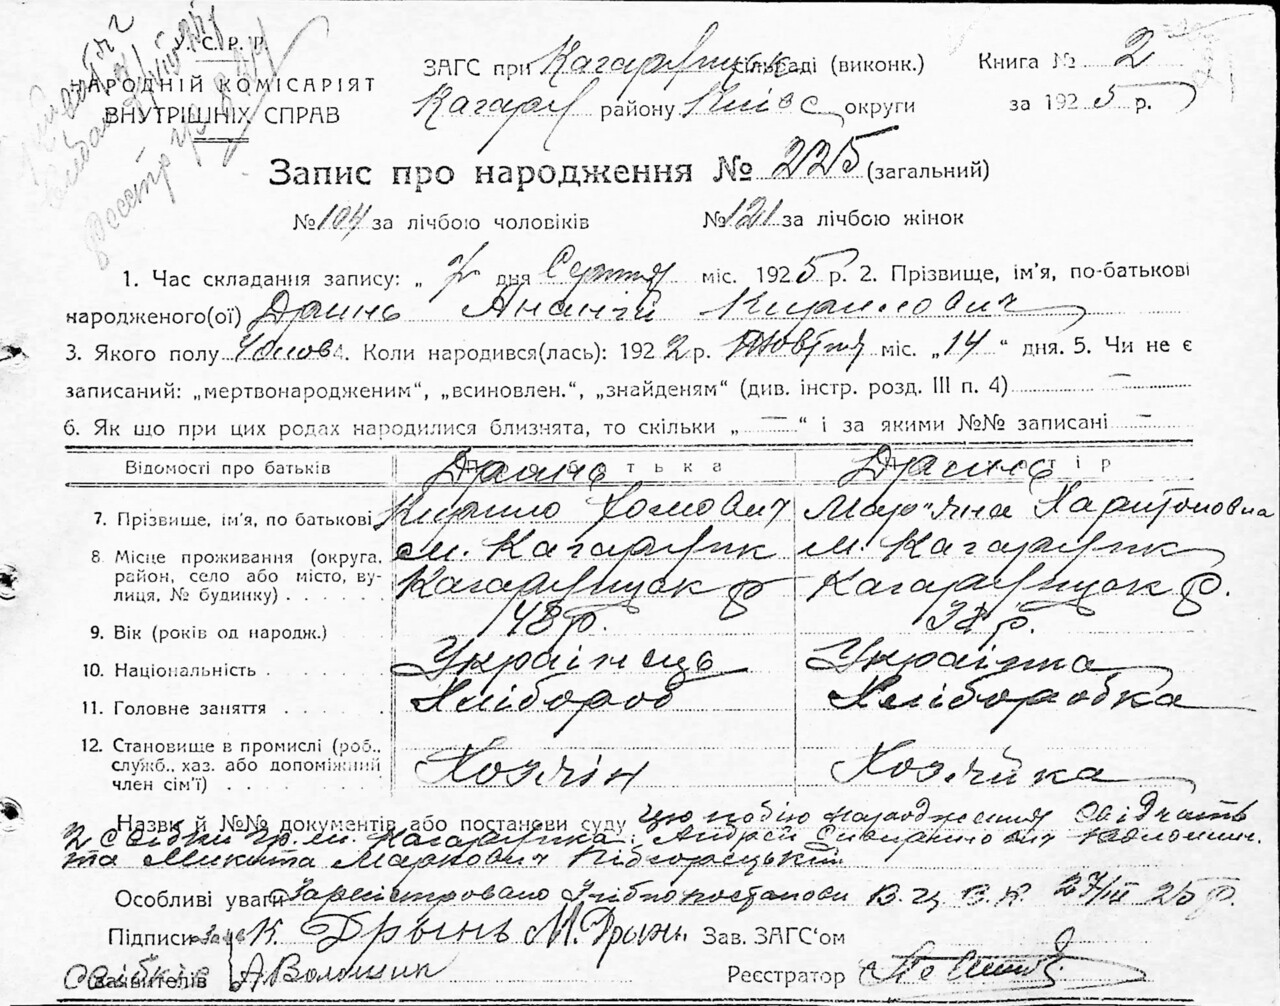 У. С. Р. Р.
НАРОДНІЙ КОМІСАРІЯТ
ВНУТРІШНІХ СПРАВ
ЗАГС при Кагарлицьк. сільраді (виконк.)
Кагарл району Київс округи
Книга № 2
за 1925 р.
Запис про народження № 225 (загальний)
№ 104 за лічбою чоловіків № 121 за лічбою жінок
1. Час складання запису: „ 7 дня Серпня міс. 1925 р. 2. Прізвище, ім'я, по-батькові
народженого(ої) Дринь Ананій Кирилович
3. Якого полу Чолов 4. Коли народився(лась): 1922 р. Жовтня міс. „14“ дня. 5. Чи не є
записаний: „мертвонародженим“, „всиновлен.“, „знайденям“ (див. інстр. розд. III п. 4) —
6. Як що при цих родах народилися близнята, то скільки „ — “ і за якими №№ записані —
Відомості про батьків Дринь Дринь
7. Прізвище, ім'я, по батькові Кирило Хомович Мар'яна Харитоновна
8 Місце проживання (округа, м. Кагарлик м. Кагарлик
район, село або місто, ву- Кагарлицьк р. Кагарлицьк р.
лиця, № будинку)
9. Вік (років од народж.) 48 р. 38 р.
10. Національність Українець Українка
11. Головне заняття Хлібороб Хліборобка
12. Становище в промислі (роб., Хозяїн Хозяйка
служб., хаз. або допоміжний
член сім'ї)
Назви й №№ документів або постанови суду цю подію народження свідчать
2 свідки гр. м. Кагарлика: Андрій
та Микита Маркович Підгорецький
Особливі уваги Зареєстровано згідно постанови В. Ц. В. К. 25 р.
Підписи К. Дрынь М. Дрынь Зав. ЗАГС'ом
заявителів свідків А Волошин Реєстратор